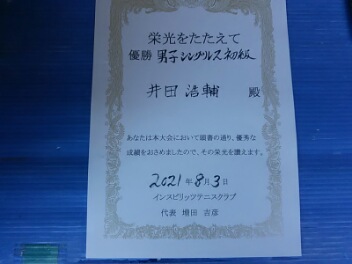 栄光をたたえて
優勝 男子シングルス初級
井田 浩輔 殿
あなたは本大会において頭書の通り、優秀な
成績をおさめましたので、その栄光を讃えます。
2021年8月3日
インスピリッツテニスクラブ
代表 増田 吉彦